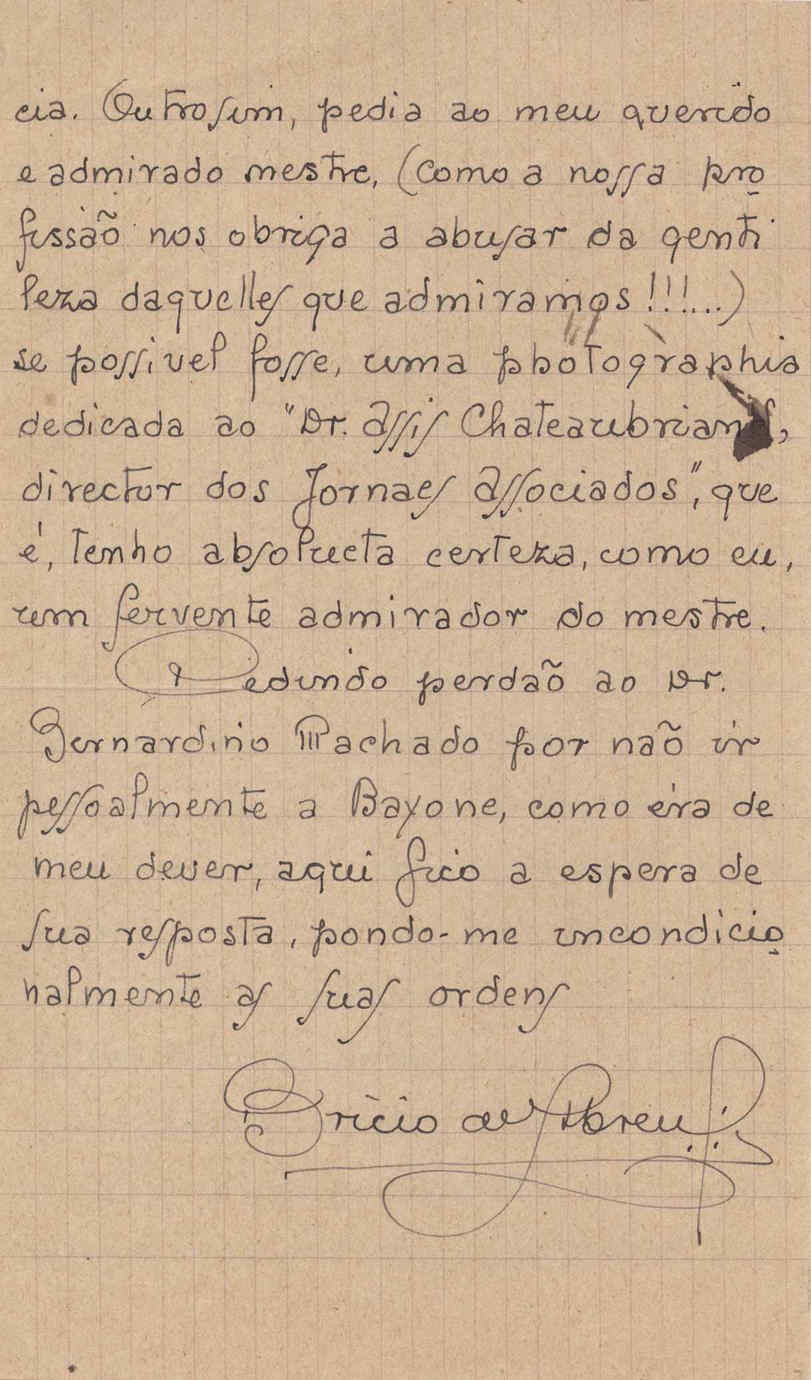 cia. Outrosim, pedia ao meu querido
e admirado mestre, (como a nossa pro
fissão nos obriga a abusar da genti
leza daquelles que admiramos!!!...)
se possivel fosse, uma photographia
dedicada ao "Dr. Assis Chateaubriand,
director dos Jornaes Associados", que
é, tenho absolucta certeza, como eu,
um fervente admirador do mestre.
Pedindo perdaõ ao Dr.
Bernardino Machado por naõ ir
pessoalmente a Bayone, como era de
meu dever, aqui fico a espera de
sua resposta, pondo-me incondicio
nalmente as suas ordens
Bricio de Abreu